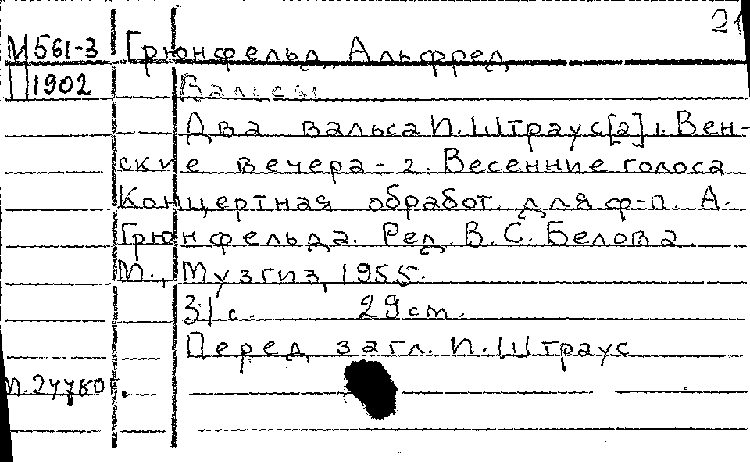 21
М561-3 Грюнфельд, Альфред
П1902 Вальсы
Два вальса И. Штраус[а] 1. Вен-
ские вечера - 2. Весенние голоса
Концертная обработ. для ф-п. А.
Грюнфельда. Ред. В. С. Белова
М., Музгиз, 1955.
31с. 29 ст.
Перед загл. И. Штраус